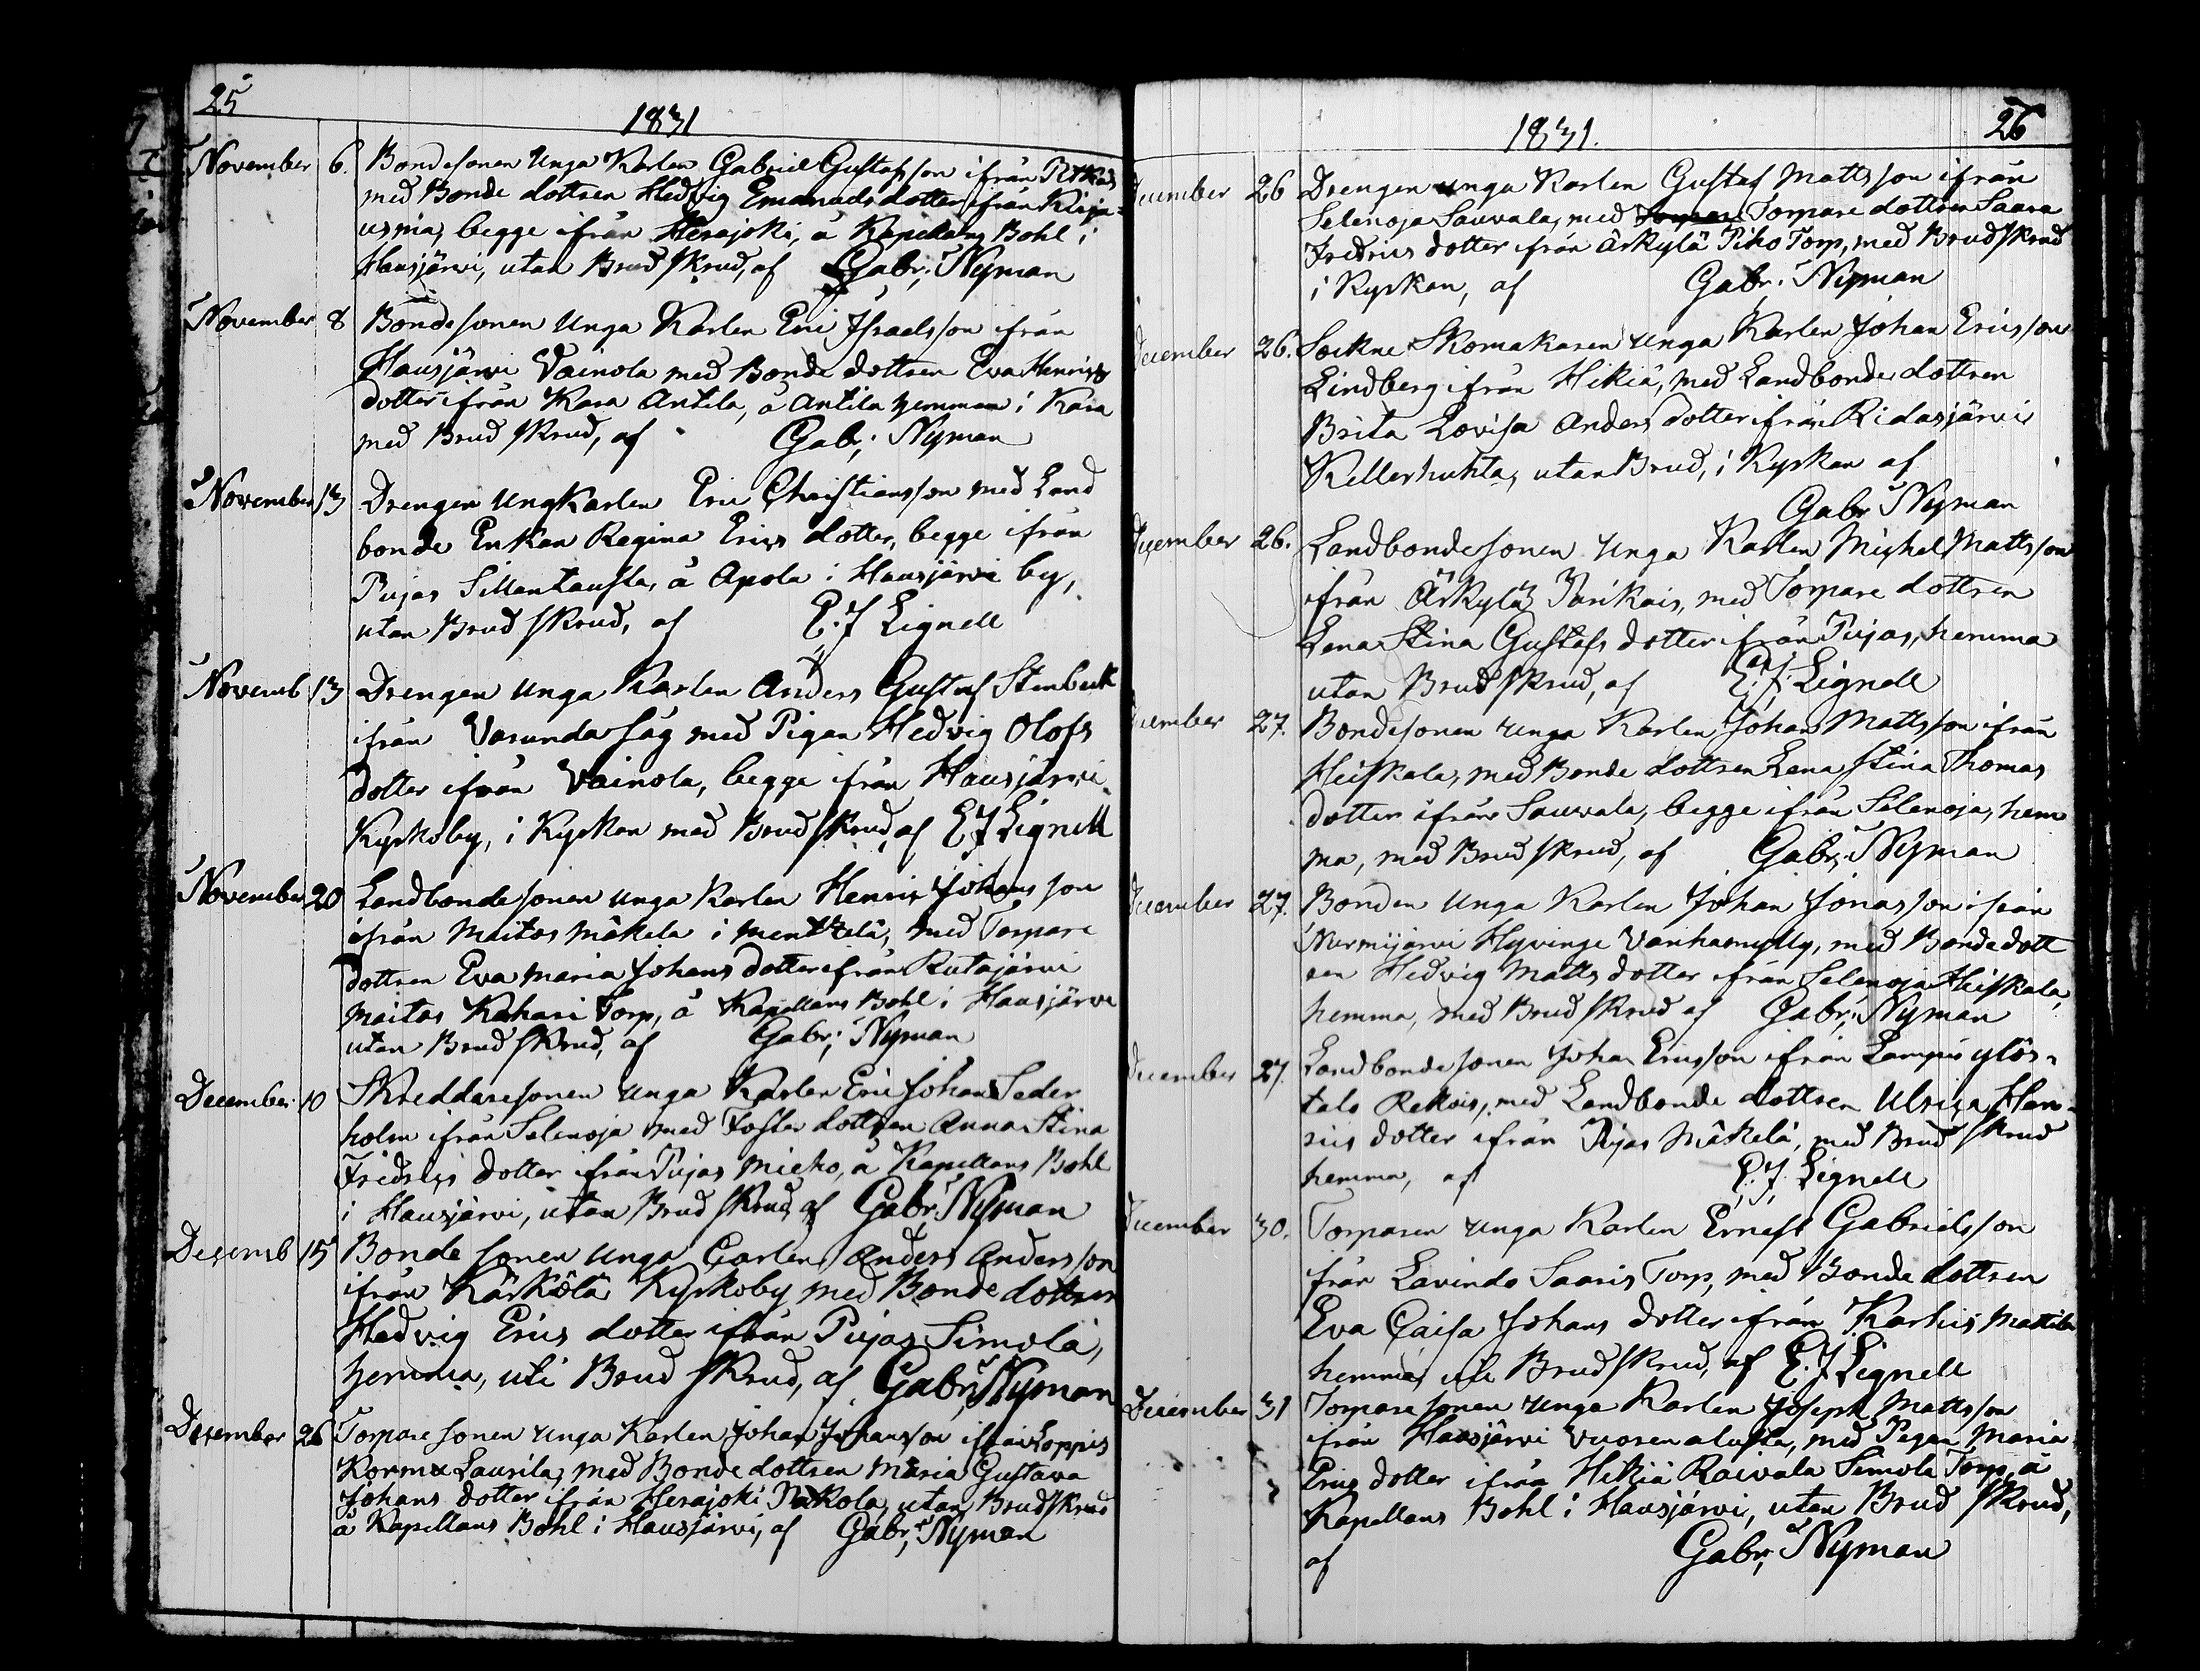 25
1831
November 6. Bondesonen Unga Karlen Gabriel Gustafsson ifrån
med Bonde dottren Hedvig Emanuels dotter ifrån Kirja-
usmia, begge ifrån Herajoki, å Kapellans Bohl i
Hausjärvi, utan Brud skrud, af Gabr; Nyman
November 8 Bondesonen Unga Karlen Eric Israelsson ifrån
Hausjärvi Vainola med Bonde dottren Eva Henrics
dotter ifrån Kara Antila, å Antila hemman i Kara
med Brud skrud, af Gabr; Nyman
November 13 Drengen Ungkarlen Eric Christiansson med Land
bonde Enkan Regina Erics dotter, begge ifrån
Pujas Sillantausta, å Apola i Hausjärvi by,
utan Brud skrud, af E.J Lignell
Novemb 13 Drengen unga Karlen Anders Gustaf Stenbeck
ifrån Varunda Såg med Pigan Hedvig Olofs
dotter ifrån Vainola, begge ifrån Hausjärvi
Kyrkoby, i Kyrkan med Brud skrud, af E J Lignell
November 20 Landbondesonen unga Karlen Henric Johansson
ifrån Maitos Mäkela i Menttzelä, med Torpare
dottren Eva Maria Johans dotter ifrån Rutajärvi
Maitos Kahari Torp, å Kapellans Bohl i Hausjärvi
utan Brud skrud, af Gabr; Nyman
December 10 Skreddaresonen unga Karlen Eric Johan Seder
holm ifrån Selenoja med Foster dottren Anna Stina
Fredrics dotter ifrån Pujas Mieho, å Kapellans Bohl
i Hausjärvi, utan Brud skrud, af Gabr; Nyman
Desemb 15 Bonde sonen unga Carlen Anders Andersson
ifrån Kärkölä Kyrkoby med Bonde dottren
Hedvig Erics dotter ifrån Pujas Simola,
hemma, uti Brud skrud, af Gabr; Nyman
Desember 26 Torpare sonen unga Karlen Johan Johansson ifrån Loppis
Kormu Laurila, med Bonde dottren Maria Gustava
Johans dotter ifrån Herajoki Pakola, utan Brudskrud
å Kapellans Bohl i Hausjärvi, af Gabr; Nyman
26
1831.
December 26 Drengen unga Karlen Gustaf Mattsson ifrån
Selenoja Sauvala, med Torpare dottren Saara
Fredrics dotter ifrån Ärkylä Piho Torp, med Brudskrud
i Kyrkan, af Gabr: Nyman
December 26. Sockne Skomakaren unga Karlen Johan Ericsson
Lindberg ifrån Hikiä, med Landbonde dottren
Brita Lovisa Anders dotter ifrån Ridasjärvi
Kellerhuhta, utan Brud, i Kyrkan af
Gabr Nyman
December 26. Landbondesonen unga Karlen Michel Mattsson
ifrån Ärkylä Parikais, med Torpare dottren
Lena Stina Gustafs dotter ifrån Pujas, hemma
utan Brud skrud, af E.J. Lignell
December 27. Bondesonen unga Karlen Johan Mattsson ifrån
Heiskala, med Bonde dottren Lena Stina Thomas
dotter ifrån Sauvala, begge ifrån Selenoja, hem
ma, med Brud skrud, af Gabr; Nyman
December 27. Bonden unga Karlen Johan Jonasson ifrån
Nurmijärvi Hyvinge Vanhamylly, med Bonde dott
ren Hedvig Matts dotter ifrån Selenoja Heiskala,
hemma, med Brud skrud af Gabr; Nyman
December 27. Landbondesonen Johan Ericsson ifrån Lampis ylös-
talo Rekois, med Landbonde dottren Ulrica Hen-
rics dotter ifrån Pujas Mäkelä, med Brud skrud
hemma, af E.J. Lignell
December 30. Torparen unga Karlen Ernest Gabrielsson
ifrån Lavindo Saaris Torp, med Bonde dottren
Eva Caisa Johans dotter ifrån Karhis Mattila
hemma, uti Brud skrud, af E.J Lignell
December 31 Torparesonen unga Karlen Joseph Mattsson
ifrån Hausjärvi Vuorenalusta, med Pigan Maria
Erics dotter ifrån Hikiä Raivala Simola Torp, å
Kapellans Bohl i Hausjärvi, utan Brud skrud,
af Gabr; Nyman